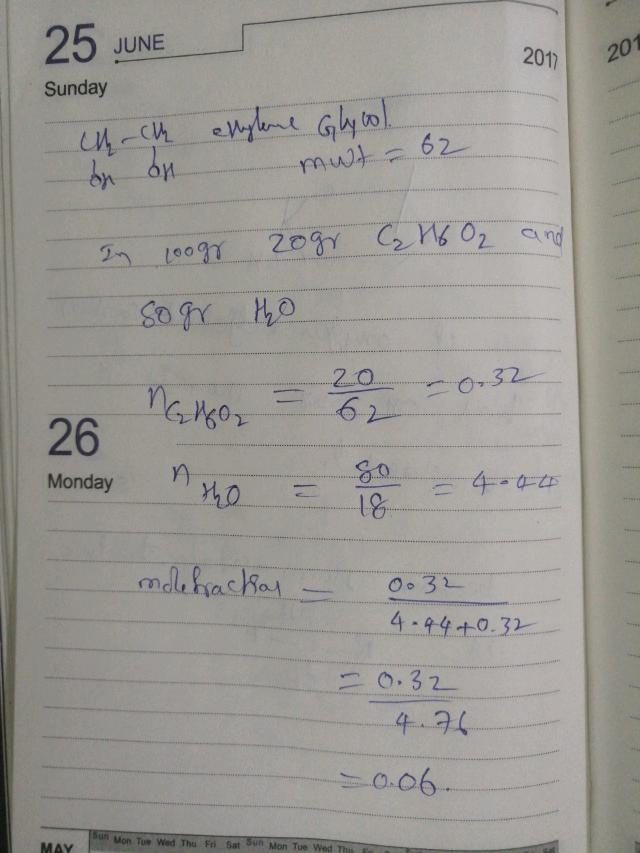 25 JUNE
2017
201
Sunday
CH2 - CH2 ethylene Glycol.
OH OH mwt = 62
In 100gr 20gr C2H6O2 and
80gr H2O
nC2H6O2 = 20/62 = 0.32
26
Monday
nH2O = 80/18 = 4.44
molefraction = 0.32/4.44+0.32
= 0.32/4.76
= 0.06.
MAY Sun Mon Tue Wed Thu Fri Sat Sun Mon Tue Wed Thu Fri Sat